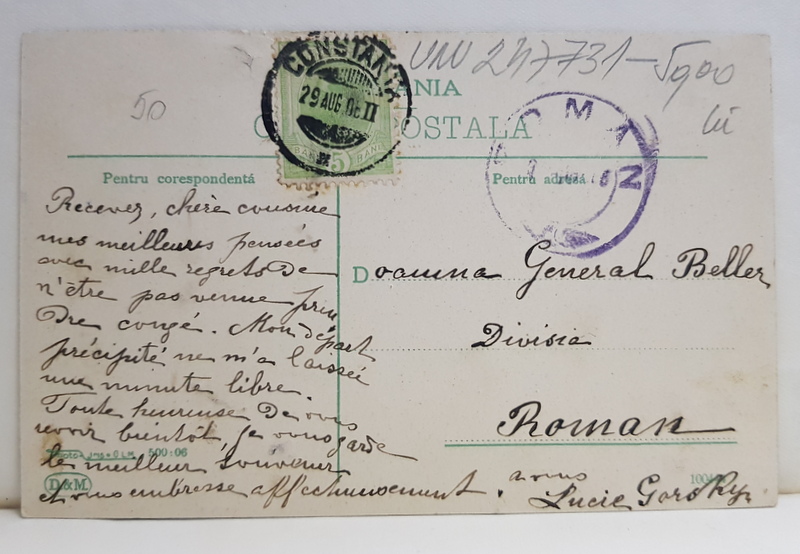 UNV 247731-5900
lei
50
CONSTANTA
29 AUG 06 II
BANI 5 BANI
ROMAN
ANIA
C OSTALA
Pentru corespondentă
Pentru adresă
Recevez, chère cousine
mes meilleures pensées
avec mille regrets de
n'être pas venue pren
dre congé. Mon départ
précipité ne m'a laissée
une minute libre.
Toute heureuse de vous
revoir bientôt, je vous garde
le meilleur souvenir
et vous embrasse affectueusement.
à vous
Lucie Gorsky
Doamna General Beller
Divisia
Roman
500:06
D.&M.